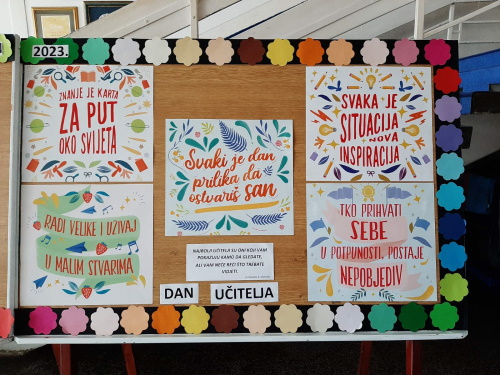 2023.
ZNANJE JE KARTA
ZA PUT
OKO SVIJETA
RADI VELIKE I UŽIVAJ
U MALIM STVARIMA
Svaki je dan
prilika da
ostvariš san
NAJBOLJI UČITELJI SU ONI KOJI VAM
POKAZUJU KAMO DA GLEDATE,
ALI VAM NEĆE REĆI ŠTO TREBATE
VIDJETI.
DAN UČITELJA
SVAKA JE
SITUACIJA
NOVA
INSPIRACIJA
TKO PRIHVATI
SEBE
U POTPUNOSTI, POSTAJE
NEPOBJEDIV